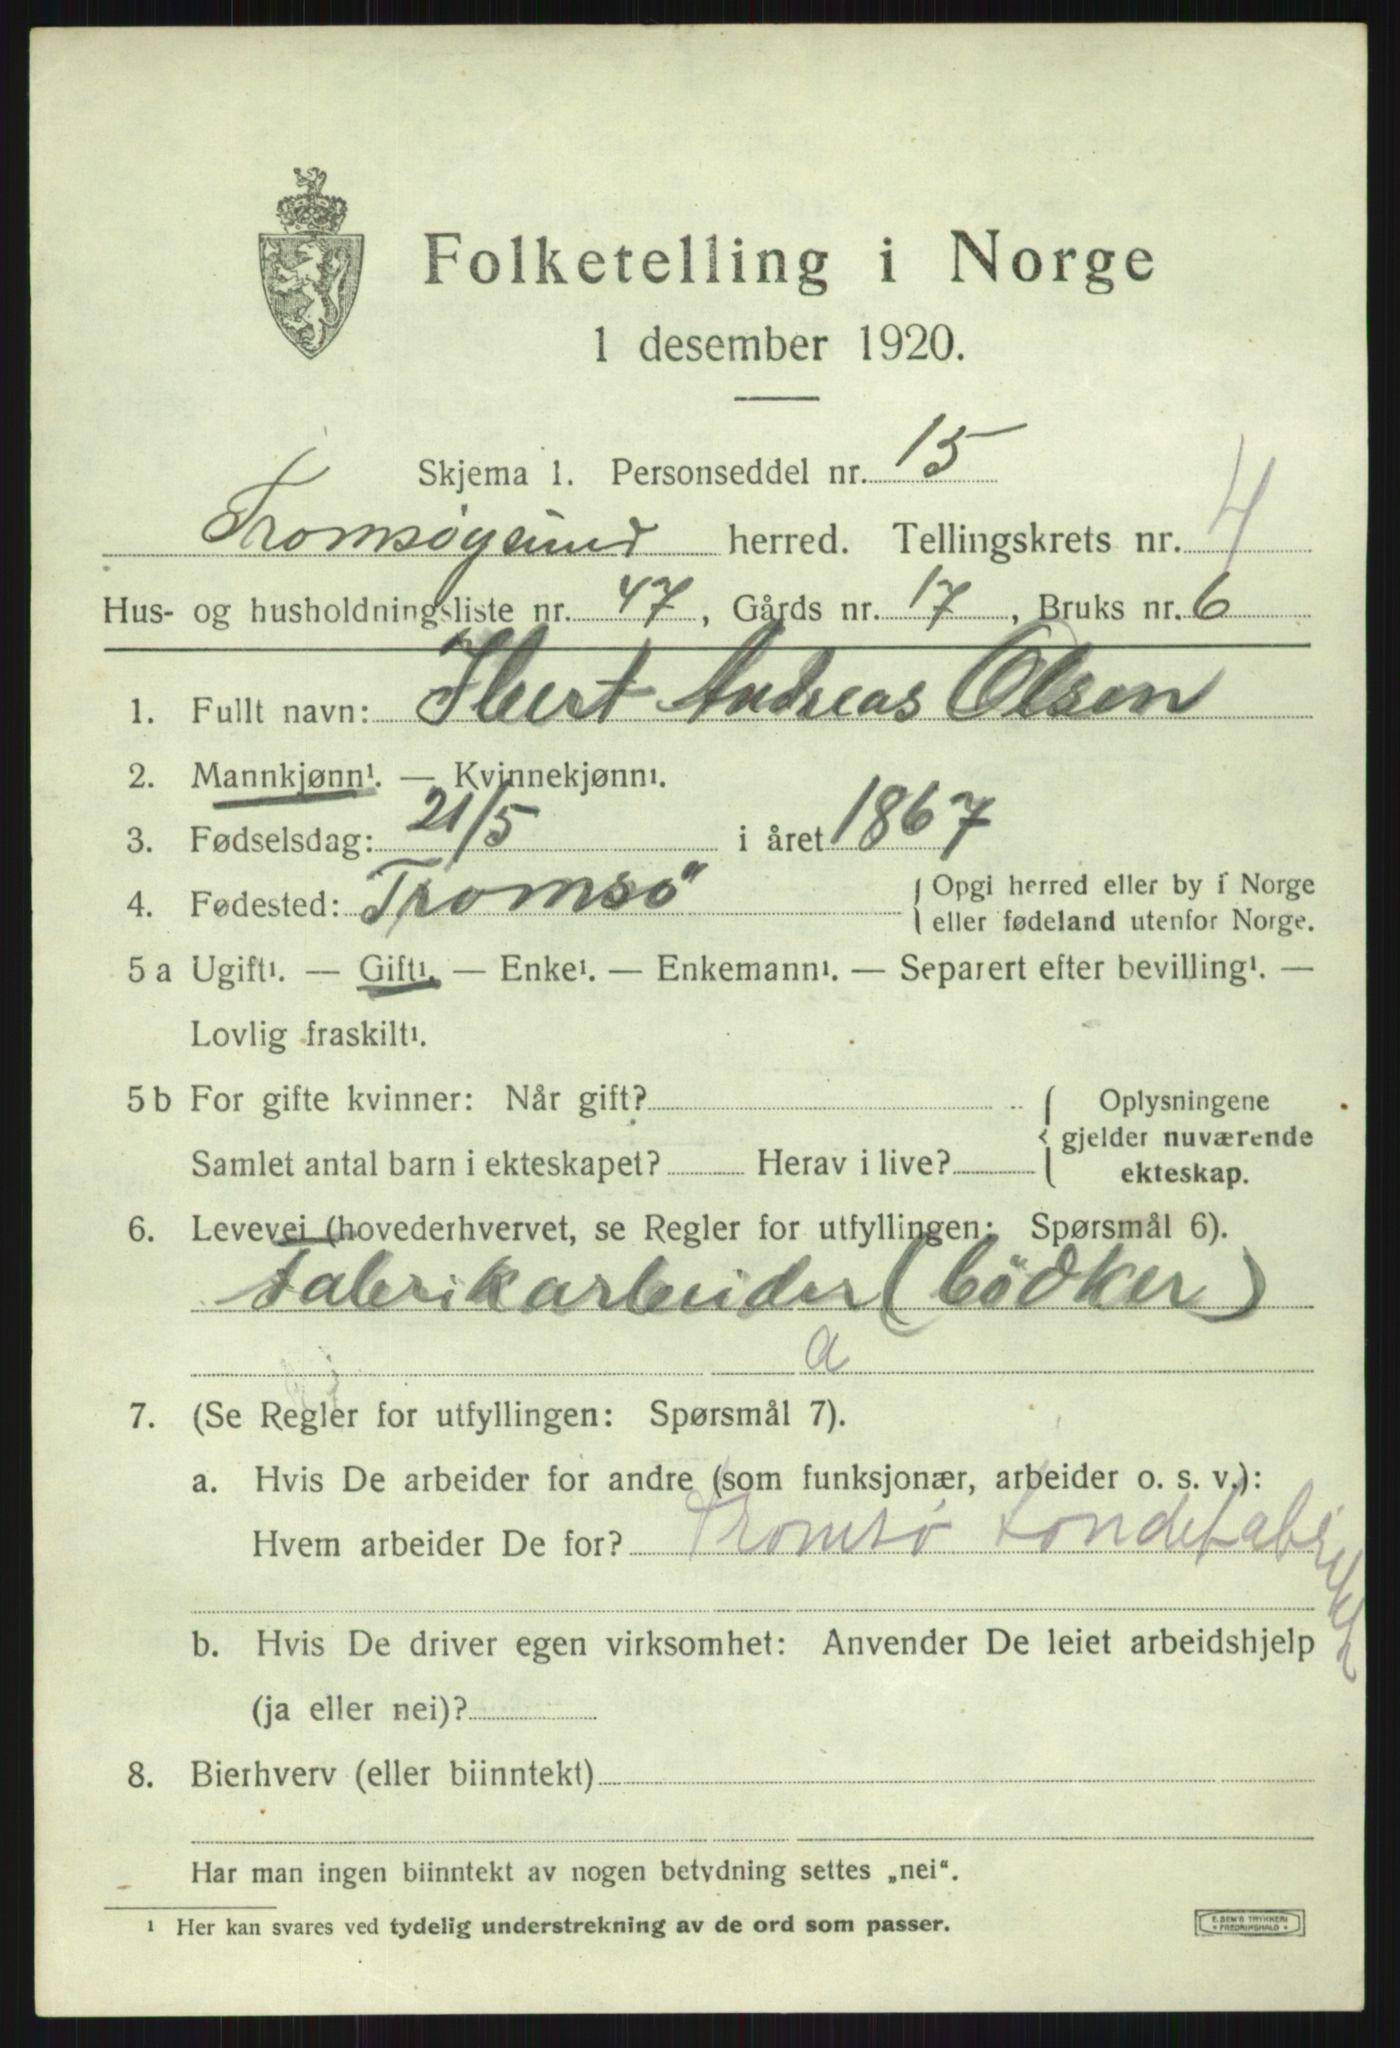 Folketelling i Norge
1 desember 1920.
Skjema 1. Personseddel nr. 15
Tromsøysund herred. Tellingskrets nr. 4
Hus- og husholdningsliste nr. 47, Gårds nr. 17, Bruks nr. 6
1. Fullt navn: Andreas Olsen
2. Mannkjønn¹. — Kvinnekjønn¹.
3. Fødselsdag: 21/5 i året 1867
4. Fødested: Tromsö { Opgi herred eller by i Norge
eller fødeland utenfor Norge.
5 a Ugift¹. — Gift¹. — Enke¹. — Enkemann¹. — Separert efter bevilling¹. —
Lovlig fraskilt¹.
5 b For gifte kvinner: Når gift? { Oplysningene
gjelder nuværende
Samlet antal barn i ekteskapet? Herav i live?
ekteskap.
6. Levevei (hovederhvervet, se Regler for utfyllingen: Spørsmål 6).
Fabrikarbeider (bödker)
a
7. (Se Regler for utfyllingen: Spørsmål 7).
a. Hvis De arbeider for andre (som funksjonær, arbeider o. s. v.):
Hvem arbeider De for? Tromsø
b. Hvis De driver egen virksomhet: Anvender De leiet arbeidshjelp
(ja eller nei)?
8. Bierhverv (eller biinntekt)
Har man ingen biinntekt av nogen betydning settes „nei“.
¹ Her kan svares ved tydelig understrekning av de ord som passer.
E. SEM'S TRYKKERI
* FREDRIKSHALD *